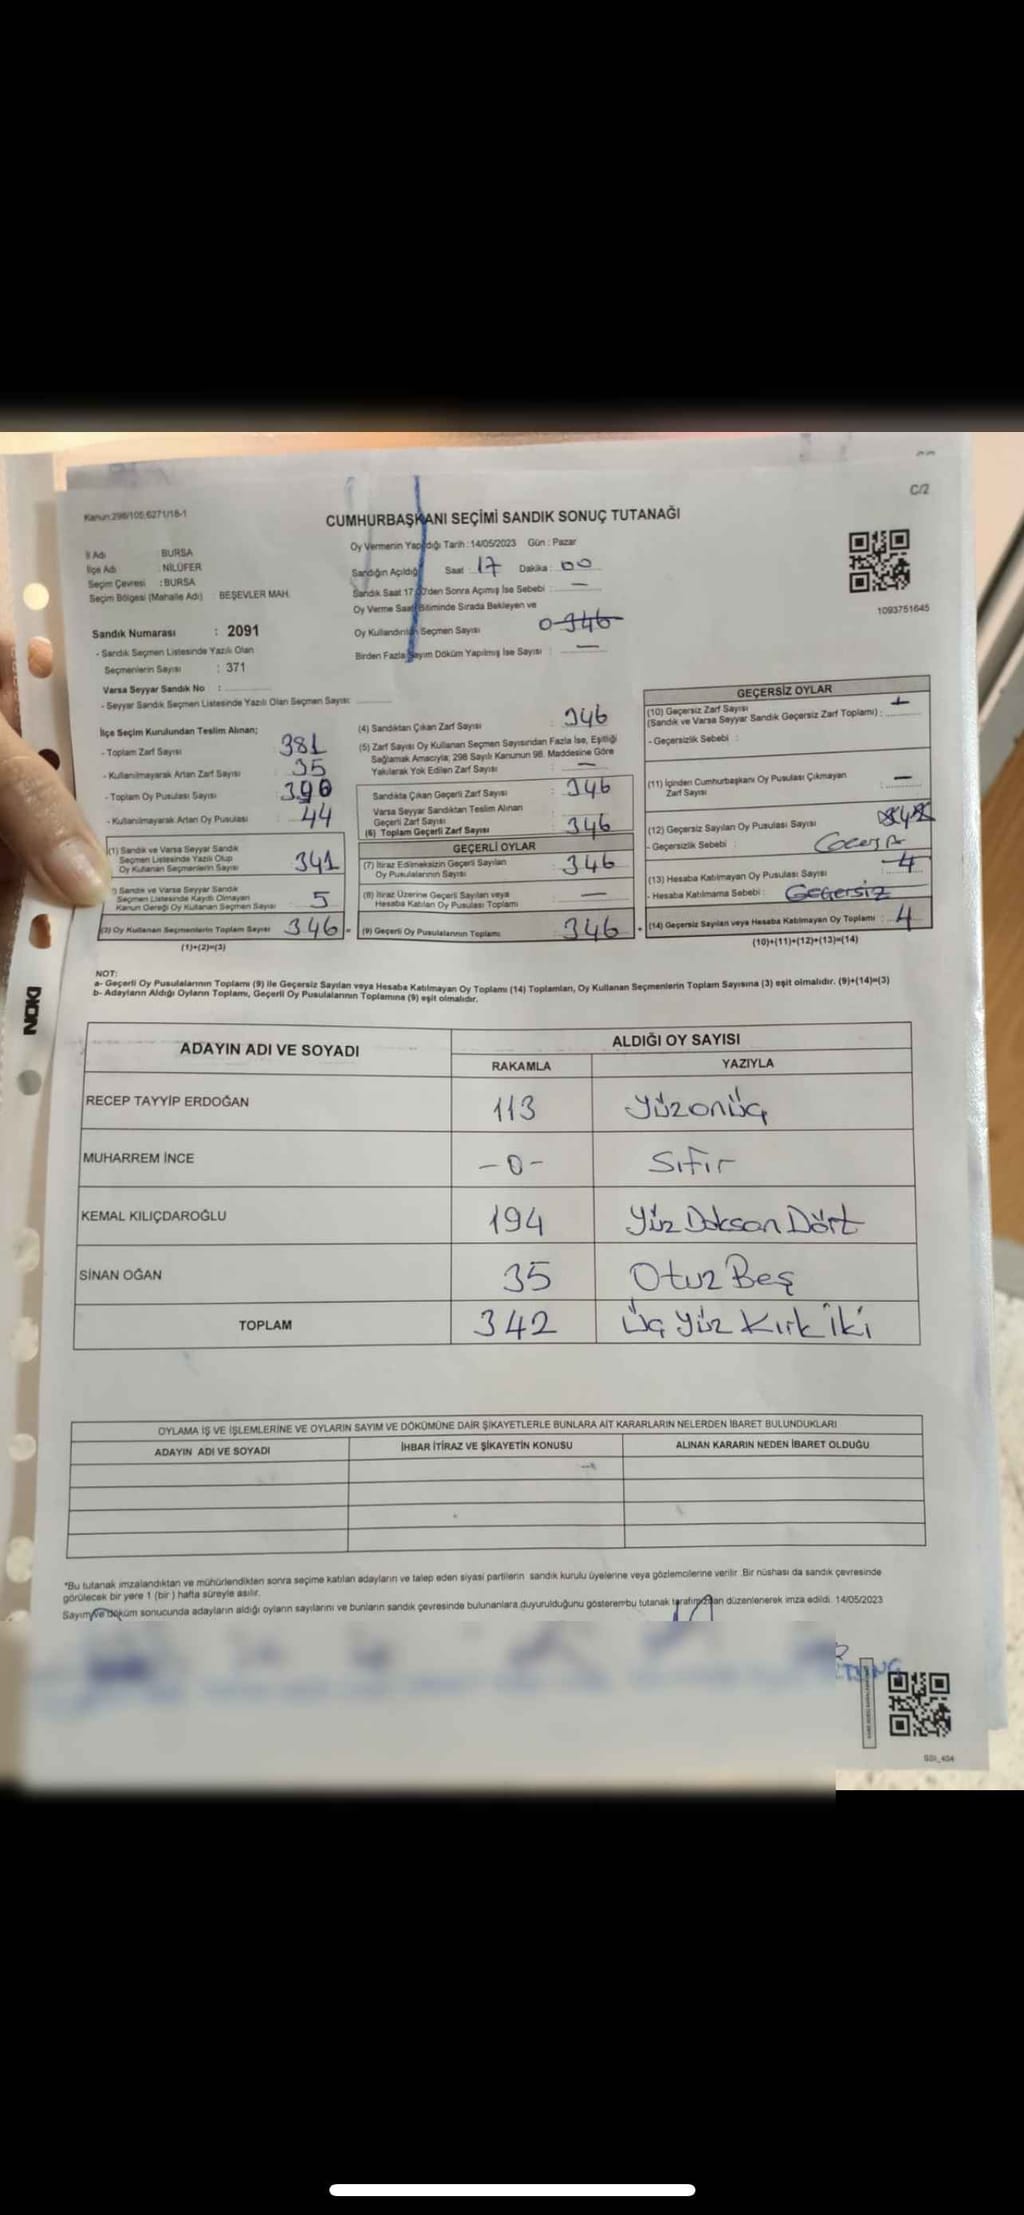 C/2
Kanun:298/105,6271/18-1
CUMHURBAŞKANI SEÇİMİ SANDIK SONUÇ TUTANAĞI
İl Adı : BURSA
İlçe Adı : NİLÜFER
Seçim Çevresi : BURSA
Seçim Bölgesi (Mahalle Adı) : BEŞEVLER MAH.
Sandık Numarası : 2091
- Sandık Seçmen Listesinde Yazılı Olan
Seçmenlerin Sayısı : 371
Varsa Seyyar Sandık No :
- Seyyar Sandık Seçmen Listesinde Yazılı Olan Seçmen Sayısı:
Oy Vermenin Yapıldığı Tarih : 14/05/2023 Gün : Pazar
Sandığın Açıldığı Saat : 17 Dakika : 00
Sandık Saat 17:00'den Sonra Açımış İse Sebebi : —
Oy Verme Saati Bitiminde Sırada Bekleyen ve
Oy Kullandırılan Seçmen Sayısı 0 346
Birden Fazla Sayım Döküm Yapılmış İse Sayısı : —
1093751645
İlçe Seçim Kurulundan Teslim Alınan;
- Toplam Zarf Sayısı : 381
- Kullanılmayarak Artan Zarf Sayısı : 35
- Toplam Oy Pusulası Sayısı : 390
- Kullanılmayarak Artan Oy Pusulası : 44
(1) Sandık ve Varsa Seyyar Sandık
Seçmen Listesinde Yazılı Olup
Oy Kullanan Seçmenlerin Sayısı : 341
Sandık ve Varsa Seyyar Sandık
Seçmen Listesinde Kaydı Olmayan
Kanun Gereği Oy Kullanan Seçmen Sayısı : 5
(3) Oy Kullanan Seçmenlerin Toplam Sayısı : 346 =
(1)+(2)=(3)
(4) Sandıktan Çıkan Zarf Sayısı : 346
(5) Zarf Sayısı Oy Kullanan Seçmen Sayısından Fazla İse, Eşitliği
Sağlamak Amacıyla; 298 Sayılı Kanunun 98. Maddesine Göre
Yakılarak Yok Edilen Zarf Sayısı : —
Sandıkta Çıkan Geçerli Zarf Sayısı : 346
Varsa Seyyar Sandıktan Teslim Alınan
Geçerli Zarf Sayısı
(6) Toplam Geçerli Zarf Sayısı : 346
GEÇERLİ OYLAR
(7) İtiraz Edilmeksizin Geçerli Sayılan
Oy Pusulalarının Sayısı : 346
(8) İtiraz Üzerine Geçerli Sayılan veya
Hesaba Katılan Oy Pusulası Toplamı : —
(9) Geçerli Oy Pusulalarının Toplamı : 346 +
GEÇERSİZ OYLAR
(10) Geçersiz Zarf Sayısı
(Sandık ve Varsa Seyyar Sandık Geçersiz Zarf Toplamı) :
- Geçersizlik Sebebi :
(11) İçinden Cumhurbaşkanı Oy Pusulası Çıkmayan
Zarf Sayısı : —
(12) Geçersiz Sayılan Oy Pusulası Sayısı
- Geçersizlik Sebebi :
(13) Hesaba Katılmayan Oy Pusulası Sayısı 4
- Hesaba Katılmama Sebebi : Geçersiz
(14) Geçersiz Sayılan veya Hesaba Katılmayan Oy Toplamı : 4
(10)+(11)+(12)+(13)=(14)
NOT:
a- Geçerli Oy Pusulalarının Toplamı (9) ile Geçersiz Sayılan veya Hesaba Katılmayan Oy Toplamı (14) Toplamları, Oy Kullanan Seçmenlerin Toplam Sayısına (3) eşit olmalıdır. (9)+(14)=(3)
b- Adayların Aldığı Oyların Toplamı, Geçerli Oy Pusulalarının Toplamına (9) eşit olmalıdır.
ADAYIN ADI VE SOYADI ALDIĞI OY SAYISI
RAKAMLA YAZIYLA
RECEP TAYYİP ERDOĞAN 113 Yüzonüç
MUHARREM İNCE -0- Sıfır
KEMAL KILIÇDAROĞLU 194 Yüz Doksan Dört
SİNAN OĞAN 35 Otuz Beş
TOPLAM 342 Üç Yüz Kırk İki
OYLAMA İŞ VE İŞLEMLERİNE VE OYLARIN SAYIM VE DÖKÜMÜNE DAİR ŞİKAYETLERLE BUNLARA AİT KARARLARIN NELERDEN İBARET BULUNDUKLARI
ADAYIN ADI VE SOYADI İHBAR İTİRAZ VE ŞİKAYETİN KONUSU ALINAN KARARIN NEDEN İBARET OLDUĞU
*Bu tutanak imzalandıktan ve mühürlendikten sonra seçime katılan adayların ve talep eden siyasi partilerin sandık kurulu üyelerine veya gözlemcilerine verilir .Bir nüshası da sandık çevresinde
görülecek bir yere 1 (bir ) hafta süreyle asılır.
Sayım ve döküm sonucunda adayların aldığı oyların sayılarını ve bunların sandık çevresinde bulunanlara duyurulduğunu gösteren bu tutanak tarafımızdan düzenlenerek imza edildi. 14/05/2023
DION